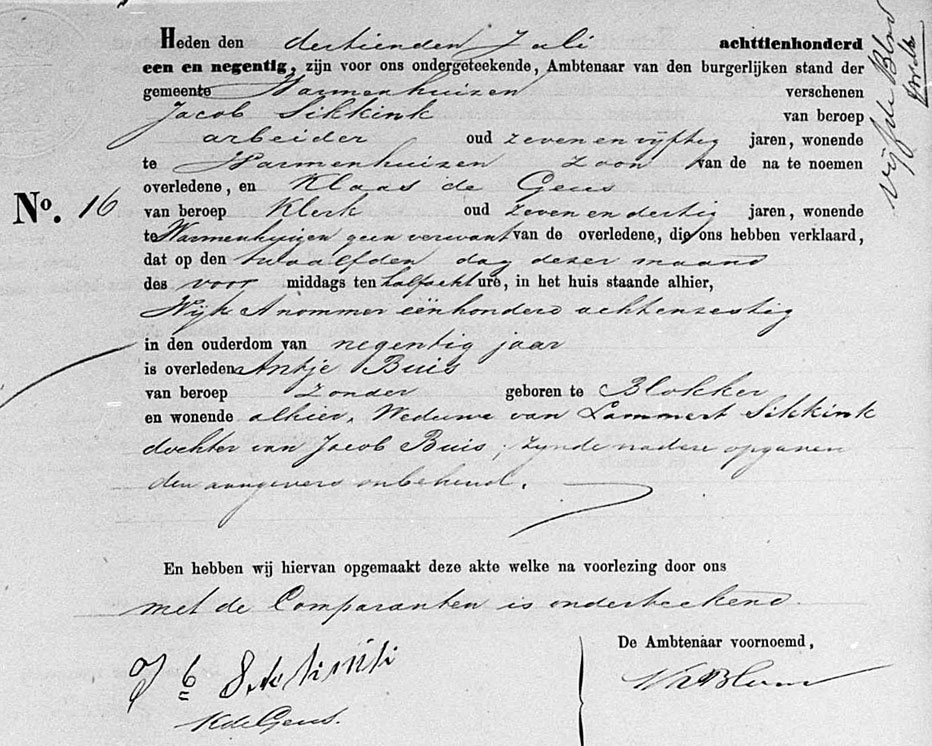 Heden den dertienden Juli achttienhonderd
een en negentig, zijn voor ons ondergeteekende, Ambtenaar van den burgerlijken stand der
gemeente Warmenhuizen verschenen
Jacob Sikkink van beroep
arbeider oud zeven en vijftig jaren, wonende
te Warmenhuizen zoon van de na te noemen
overledene, en Klaas de Geus
No. 16
van beroep Klerk oud zeven en dertig jaren, wonende
te Warmenhuizen geen verwant van de overledene, die ons hebben verklaard,
dat op den twaalfden dag dezer maand
des voor middags ten half acht ure, in het huis staande alhier,
Wijk A nommer eenhonderd achtenzestig
in den ouderdom van negentig jaar
is overleden Antje Buis
van beroep zonder geboren te Blokker
en wonende alhier, Weduwe van Lammert Sikkink
dochter van Jacob Buis, zijnde nadere opgaven
den aangevers onbekend.
En hebben wij hiervan opgemaakt deze akte welke na voorlezing door ons
met de Comparanten is onderteekend.
De Ambtenaar voornoemd,
K de Geus.